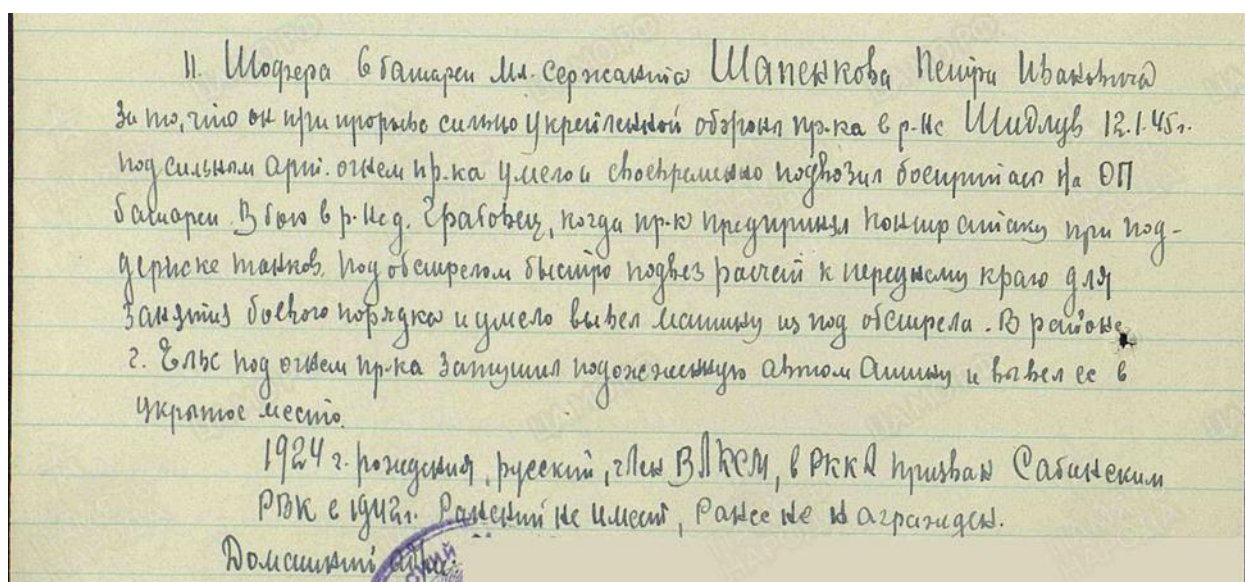 11. Шофера 6 батареи Мл. сержанта Шапенкова Петра Ивановича
За то, что он при прорыве сильно укрепленной обороны пр-ка в р-не Шидлув 12.1.45г.
под сильным арт. огнем пр.ка умело и своевременно подвозил боеприпасы на ОП
батареи. В бою в р-не д. Грабовец, когда пр-к предпринял контратаку при под-
держке танков, под обстрелом быстро подвез расчет к переднему краю для
занятия боевого порядка и умело вывел машину из под обстрела. В районе
г. Ельс под огнем пр-ка затушил подожженную автомашину и вывел ее в
укрытое место.
1924 г. рождения, русский, член ВЛКСМ, в РККА призван Сабинским
РВК с 1942г. Ранений не имеет, Ранее не награжден.
Домашний адрес: